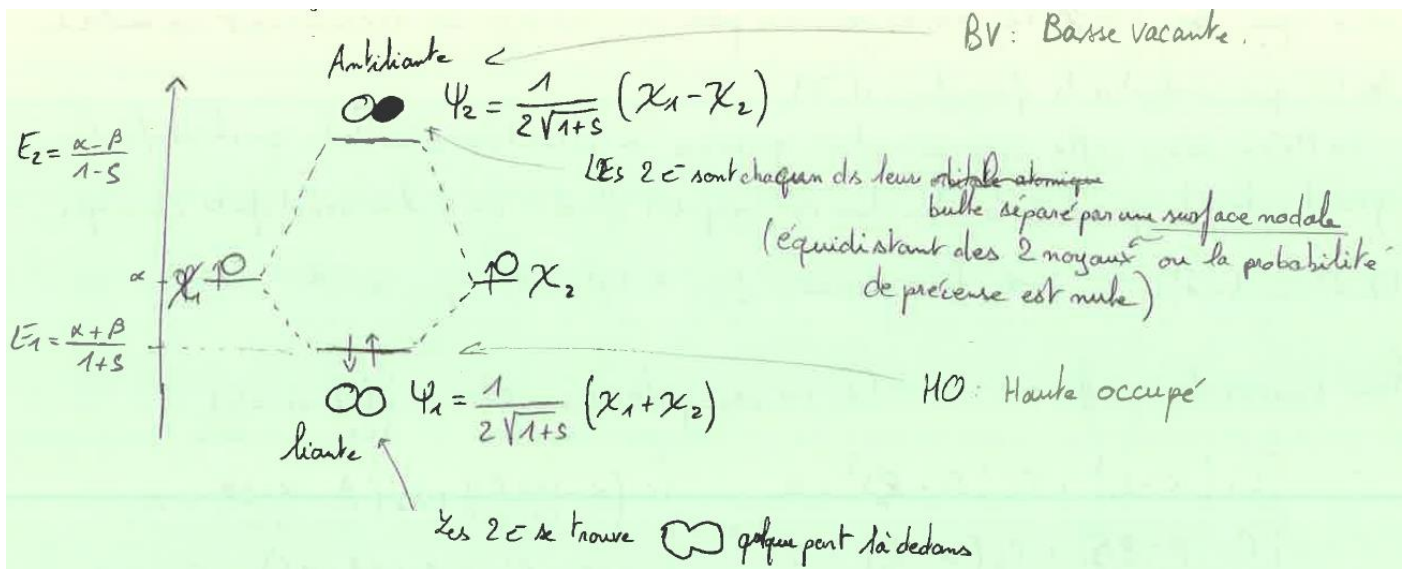 BV : Basse vacante.
Antiliante
Ψ₂ = 1/(2√(1+S)) (χ₁ - χ₂)
E₂ = (α-β)/(1-S)
LES 2 e⁻ sont chaqun ds leur orbitale atomique
bulle séparé par une surface nodale
(équidistant des 2 noyaux ou la probabilité
de précense est nule)
α χ₁ χ₂
E₁ = (α+β)/(1+S)
HO : Haute occupé
Ψ₁ = 1/(2√(1+S)) (χ₁ + χ₂)
liante
Les 2 e⁻ se trouve qulque part là dedans